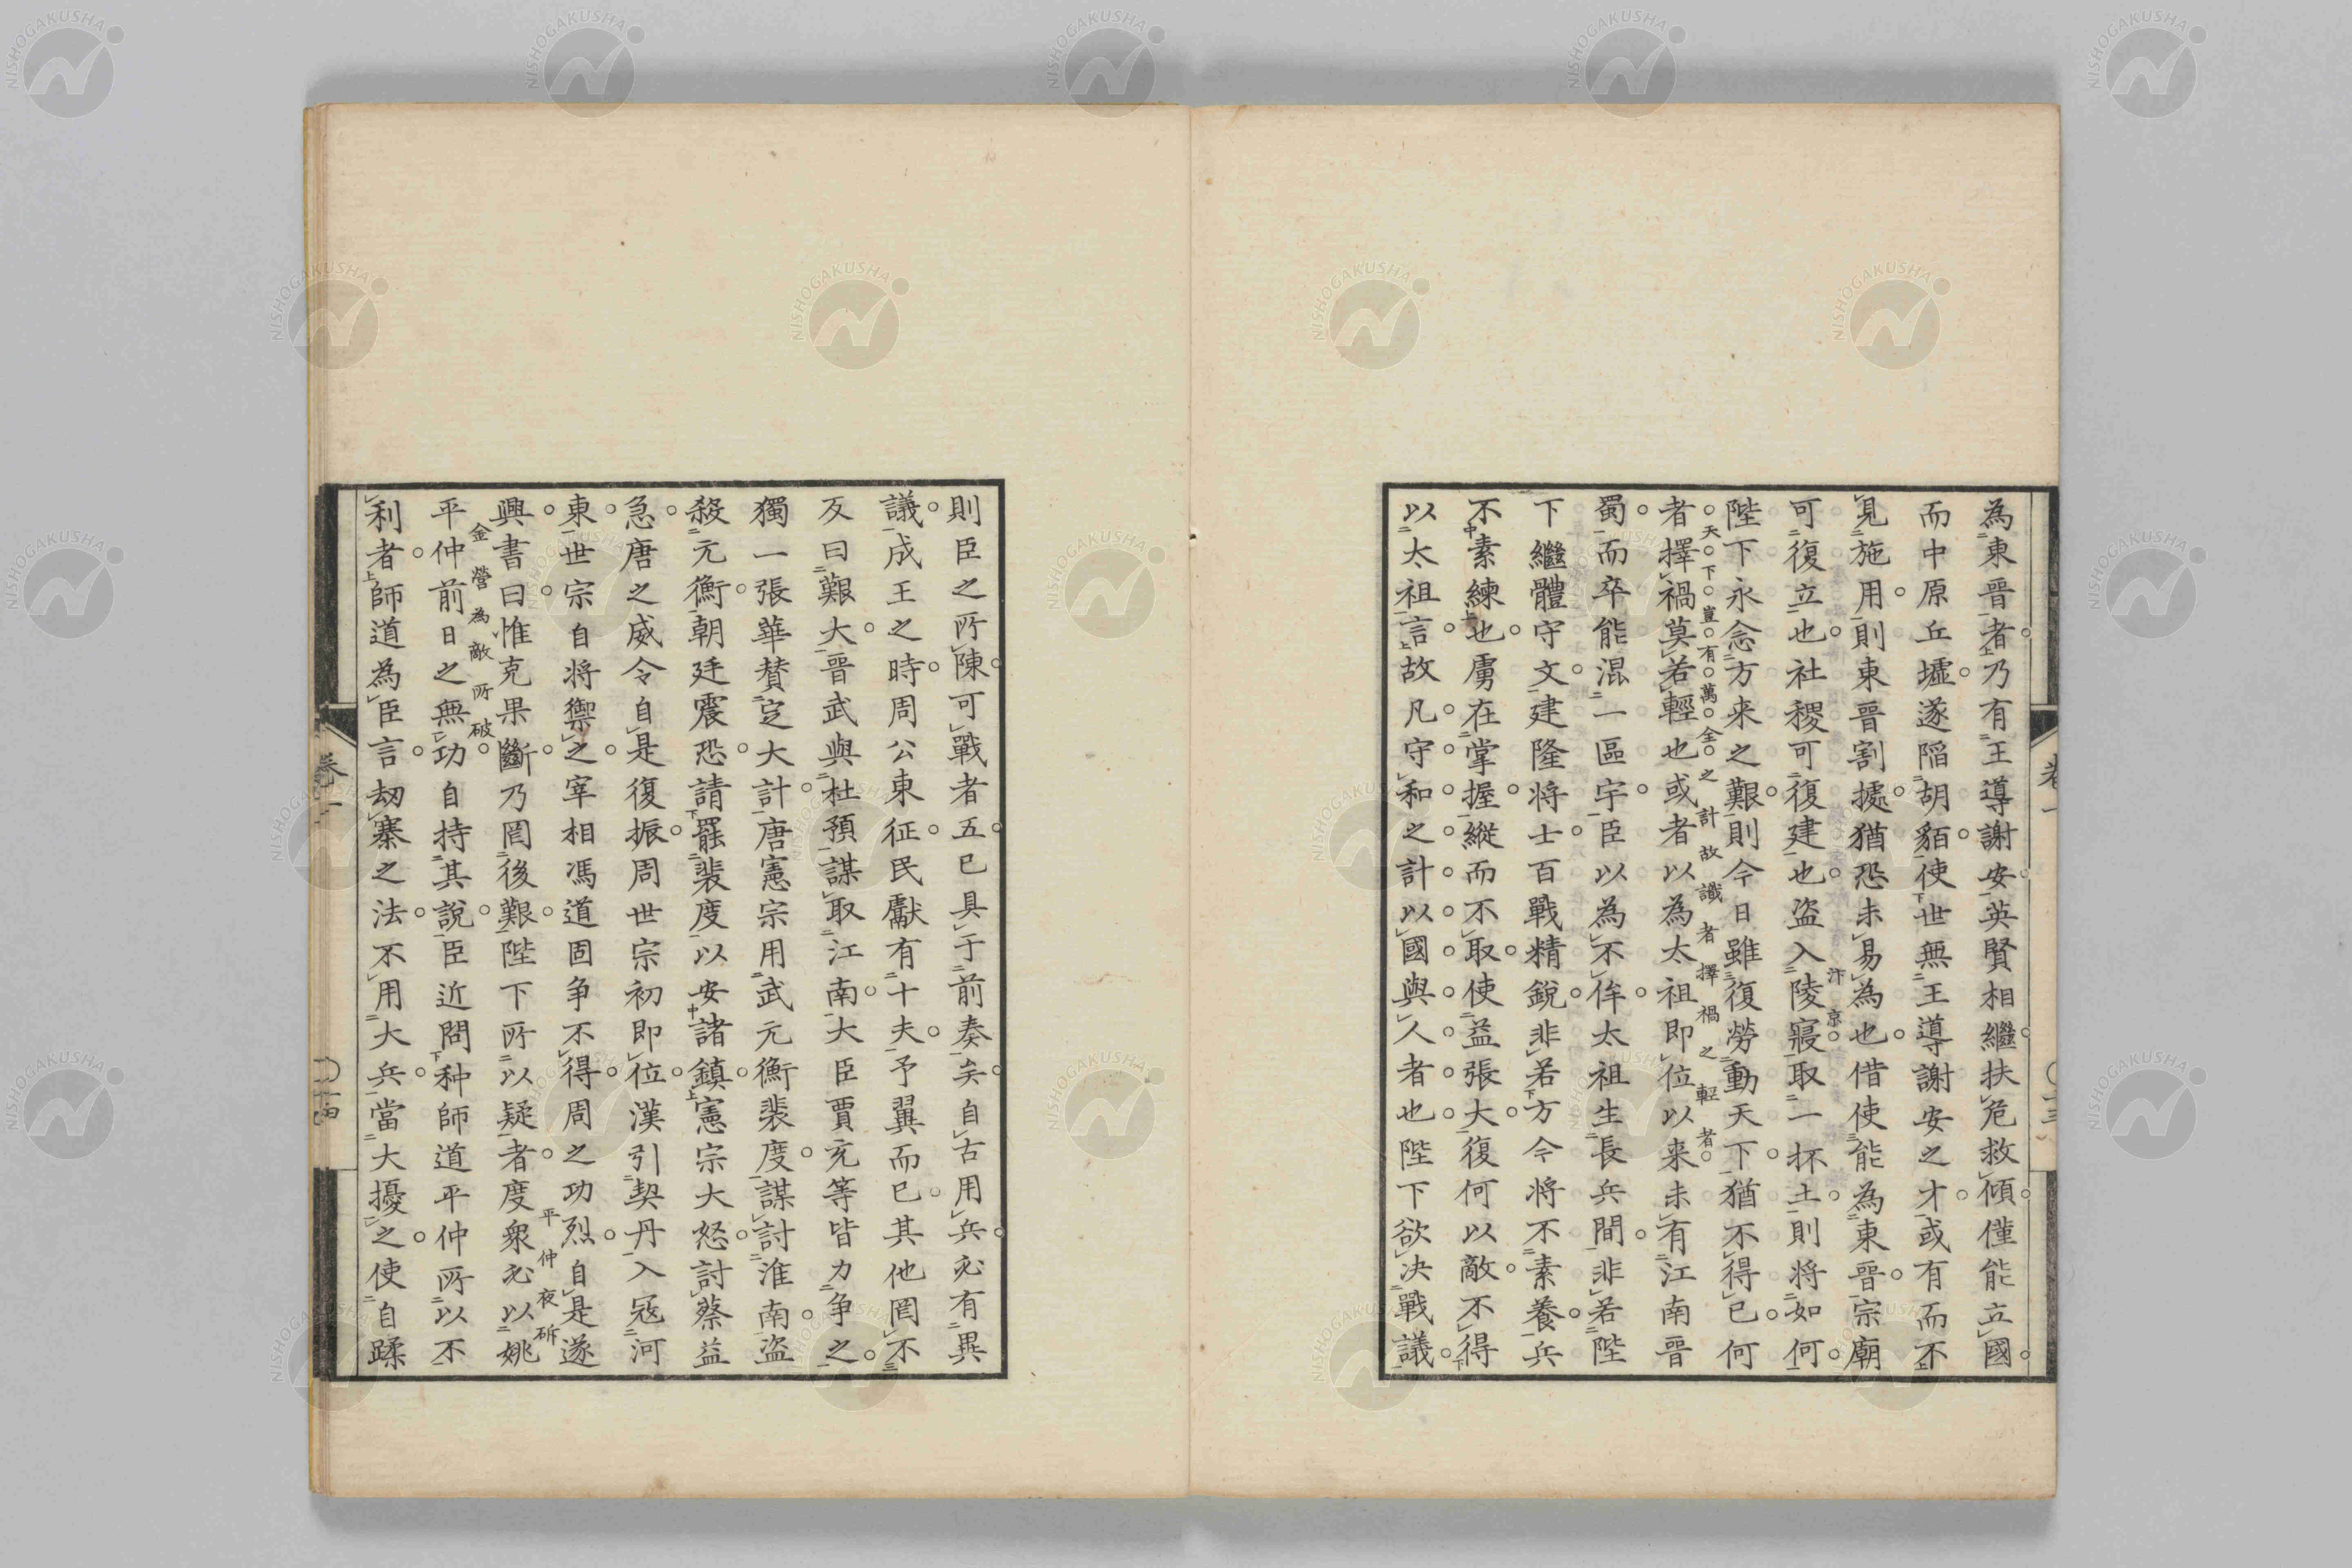 為東晉者乃有王導謝安英賢相繼扶危救傾僅能立國
而中原丘墟遂陷胡貊使世無王導謝安之才或有而不
見施用則東晉割據猶恐未易為也借使能為東晉宗廟
可復立也社稷可復建也盜入陵寢取一抔土則將如何
汴京
陛下永念方来之艱則今日雖復勞動天下猶不得已何
天下豈有萬全之計故識者擇禍之輕者
者擇禍莫若輕也或者以為太祖即位以来未有江南晉
蜀而卒能混一區宇臣以為不侔太祖生長兵間非若陛
下繼體守文建隆将士百戰精銳非若方今将不素養兵
不素練也虜在掌握縱而不取使益張大復何以敵不得
以太祖言故凡守和之計以國與人者也陛下欲决戰議
卷一
則臣之所陳可戰者五已具于前奏矣自古用兵必有異
議成王之時周公東征民獻有十夫予翼而已其他罔不
反曰艱大晉武與杜預謀取江南大臣賈充等皆力争之
獨一張華賛定大計唐憲宗用武元衡裴度謀討淮南盜
殺元衡朝廷震恐請罷裴度以安諸鎮憲宗大怒討蔡益
急唐之威令自是復振周世宗初即位漢引契丹入冦河
東世宗自将禦之宰相馮道固争不得周之功烈自是遂
平仲夜斫
興書曰惟克果斷乃罔後艱陛下所以疑者度衆必以姚
金營為敵所破
平仲前日之無功自持其說臣近問种師道平仲所以不
利者師道為臣言劫寨之法不用大兵當大擾之使自蹂
卷一
NISHOGAKUSHA